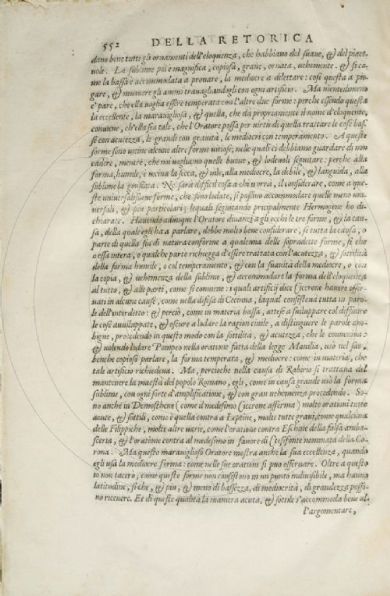 552 DELLA RETORICA
dono bene tutti gli ornamenti dell'eloquenza, che habbiano del suaue, & del piaceuole.
La sublime poi e magnifica, copiosa, graue, ornata, uehemente. & si come
la bassa è accommodata a prouare, la mediocre a dilettare: così questa a piegare,
& muouere gli animi trauagliandogli con ogni artificio. Ma nientedimeno
e' pare, che ella uoglia essere temperata con l'altre due forme: perche essendo questa
la eccellente, la marauigliosa, & quella, che dà propriamente il nome d'eloquente,
conuiene, ch'ella sia tale, che l'Oratore possa per uirtù di quella trattare le cose basse
con acutezza, le grandi con grauità, le mediocri con temperamento. A queste
forme sono uicine alcune altre forme uitiose; nelle quali ci debbiamo guardare di non
cadere, mentre, che noi uogliamo quelle buone, & lodeuoli seguitare: perche alla
forma, humile, è uicina la secca, & uile, alla mediocre, la debile, & languida, alla
sublime la gonfiata.
della quale egli ha a parlare, debbe molto bene considerare, se tutta la causa, o
parte di quella sia di natura conforme a qualcuna delle sopradette forme, si che
o essa intera, o qualche parte richiegga d'essere trattata con l'acutezza, & sottilità
della forma humile, o col temperamento, & con la suauità della mediocre, o con
la copia, & uehemenza della sublime, & accommodare la forma dell'eloquenza
al tutto, & alle parti, come si conuiene: i quali artificij dice Cicerone hauere osseruati
in alcune cause, come nella difesa di Cecinna, laqual consisteua tutta in parole
dell'interditto: & perciò, come in materia bassa, attese a
le cose auuiluppate, & a distinguere le parole ambigue,
procedendo in questo modo con la sottilità, & acutezza, che le conueniua:
& uolendo lodare Pompeo nella oratione fatta della legge Manilia, usò nel suo,
benche copioso parlare, la forma temperata, & mediocre: come in materia, che
tale artificio richiedeua. Ma, percioche nella causa di Rabirio si trattaua del
mantenere la maestà del popolo Romano, egli, come in causa grande usò la forma
sublime, con ogni sorte d'amplificatione, & con gran uehemenza procedendo. Sono
anche in Demosthene (come al medesimo Cicerone afferma) molte orationi tutte
acute, & sottili, come è quella contra a Leptine, molte tutte graui, come qualcuna
delle Filippiche, molte altre uarie, come l'oratione contra Eschine della falsa ambasceria,
& l'oratione contra al medesimo in fauore di Ctesifonte nominata della Corona.
Ma questo marauiglioso Oratore mostra anche la sua eccellenza, quando
egli usa la mediocre forma: come nelle sue orationi si può osseruare. Oltre a questo
io non tacerò, come queste forme non consistono in un punto indiuisibile, ma hanno
latitudine, si che, & più, & meno di bassezza, di mediocrità, di grandezza possino
riceuere. Et di queste qualità la maniera acuta, & sottile s'accommoda bene al-
l'argomentare,